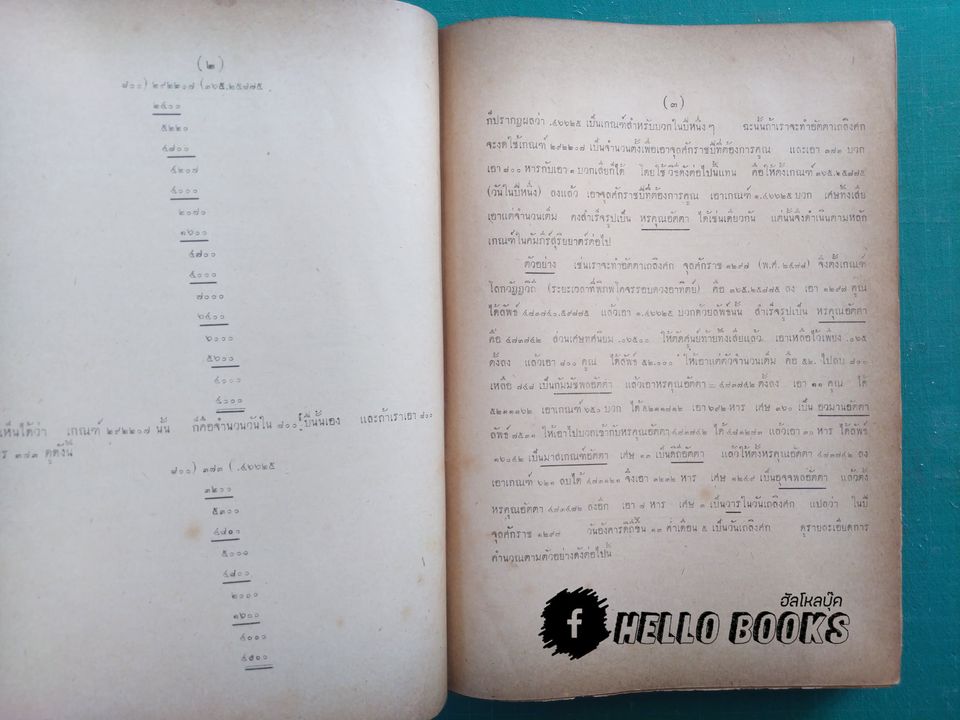 (๒)
๘๐๐) ๒๙๒๒๐๗ (๓๖๕.๒๕๘๗๕
๒๔๐๐
๕๒๒๐
๔๘๐๐
๔๒๐๗
๔๐๐๐
๒๐๗๐
๑๖๐๐
๔๗๐๐
๔๐๐๐
๗๐๐๐
๖๔๐๐
๖๐๐๐
๕๖๐๐
๔๐๐๐
๔๐๐๐
เห็นได้ว่า เกณฑ์ ๒๙๒๒๐๗ นั้น ก็คือจำนวนวันใน ๘๐๐ ปีนั้นเอง และถ้าเราเอา ๘๐๐
ร ๓๗๓ ดูดังนี้
๘๐๐) ๓๗๓ ( .๔๖๖๒๕
๓๒๐๐
๕๓๐๐
๔๘๐๐
๕๐๐๐
๔๘๐๐
๒๐๐๐
๑๖๐๐
๔๐๐๐
๔๐๐๐
(๓)
ก็ปรากฏผลว่า .๔๖๖๒๕ เป็นเกณฑ์สำหรับบวกในปีหนึ่ง ๆ ฉะนั้นถ้าเราจะทำอัตตาเถลิงศก
จะงดใช้เกณฑ์ ๒๙๒๒๐๗ เป็นจำนวนตั้งเพื่อเอาจุลศักราชปีที่ต้องการคูณ และเอา ๓๗๓ บวก
เอา ๘๐๐ หารกับเอา ๑ บวกเสียก็ได้ โดยใช้วิธีดังต่อไปนี้แทน คือให้ตั้งเกณฑ์ ๓๖๕.๒๕๘๗๕
(วันในปีหนึ่ง) ลงแล้ว เอาจุลศักราชปีที่ต้องการคูณ เอาเกณฑ์ ๑.๔๖๖๒๕ บวก เศษทิ้งเสีย
เอาแต่จำนวนเต็ม คงสำเร็จรูปเป็น หรคุณอัตตา ได้เช่นเดียวกัน แต่นั้นจึงดำเนินตามหลัก
เกณฑ์ในคัมภีร์สุริยยาตร์ต่อไป
ตัวอย่าง เช่นเราจะทำอัตตาเถลิงศก จุลศักราช ๑๒๙๗ (พ.ศ. ๒๔๗๘) จึงตั้งเกณฑ์
(ระยะเวลาที่พิภพโคจรรอบดวงอาทิตย์) คือ ๓๖๕.๒๕๘๗๕ ลง เอา ๑๒๙๗ คูณ
ได้ลัพธ์ ๔๗๓๗๔๐.๕๙๘๗๕ แล้วเอา ๑.๔๖๖๒๕ บวกด้วยลัพธ์นั้น สำเร็จรูปเป็น หรคุณอัตตา
คือ ๔๗๓๗๔๒ ส่วนเศษทศนิยม .๐๖๕๐๐ ให้ตัดศูนย์ท้ายทิ้งเสียแล้ว เอาเหลือไว้เพียง .๐๖๕
ตั้งลง แล้วเอา ๘๐๐ คูณ ได้ลัพธ์ ๕๒.๐๐๐ ให้เอาแต่ตัวจำนวนเต็ม คือ ๕๒. ไปลบ ๘๐๐
เหลือ ๗๔๘ เป็นกัมมัชพลอัตตา แล้วเอาหรคุณอัตตา = ๔๗๓๗๔๒ ตั้งลง เอา ๑๑ คูณ ได้
๕๒๑๑๑๖๒ เอาเกณฑ์ ๖๕๐ บวก ได้ ๕๒๑๑๘๑๒ เอา ๖๙๒ หาร เศษ ๓๖๐ เป็น อวมานอัตตา
ลัพธ์ ๗๕๓๑ ให้เอาไปบวกเข้ากับหรคุณอัตตา ๔๗๓๗๔๒ ได้ ๔๘๑๒๗๓ แล้วเอา ๓๐ หาร ได้ลัพธ์
๑๖๐๔๒ เป็นมาสเกณฑ์อัตตา เศษ ๑๓ เป็นดิถีอัตตา แล้วให้ตั้งหรคุณอัตตา ๔๗๓๗๔๒ ลง
เอาเกณฑ์ ๖๒๑ ลบได้ ๔๗๓๑๒๑ จึงเอา ๓๒๓๒ หาร เศษ ๑๒๔๙ เป็นอุจจพลอัตตา แล้วตั้ง
หรคุณอัตตา ๔๗๓๗๔๒ ลงอีก เอา ๗ หาร เศษ ๓ เป็นวารในวันเถลิงศก แปลว่า ในปี
จุลศักราช ๑๒๙๗ วันอังคารดิถีขึ้น ๑๓ ค่ำเดือน ๕ เป็นวันเถลิงศก ดูรายละเอียดการ
คำนวณตามตัวอย่างดังต่อไปนี้
ฮัลโหลบุ๊ค
f HELLO BOOKS